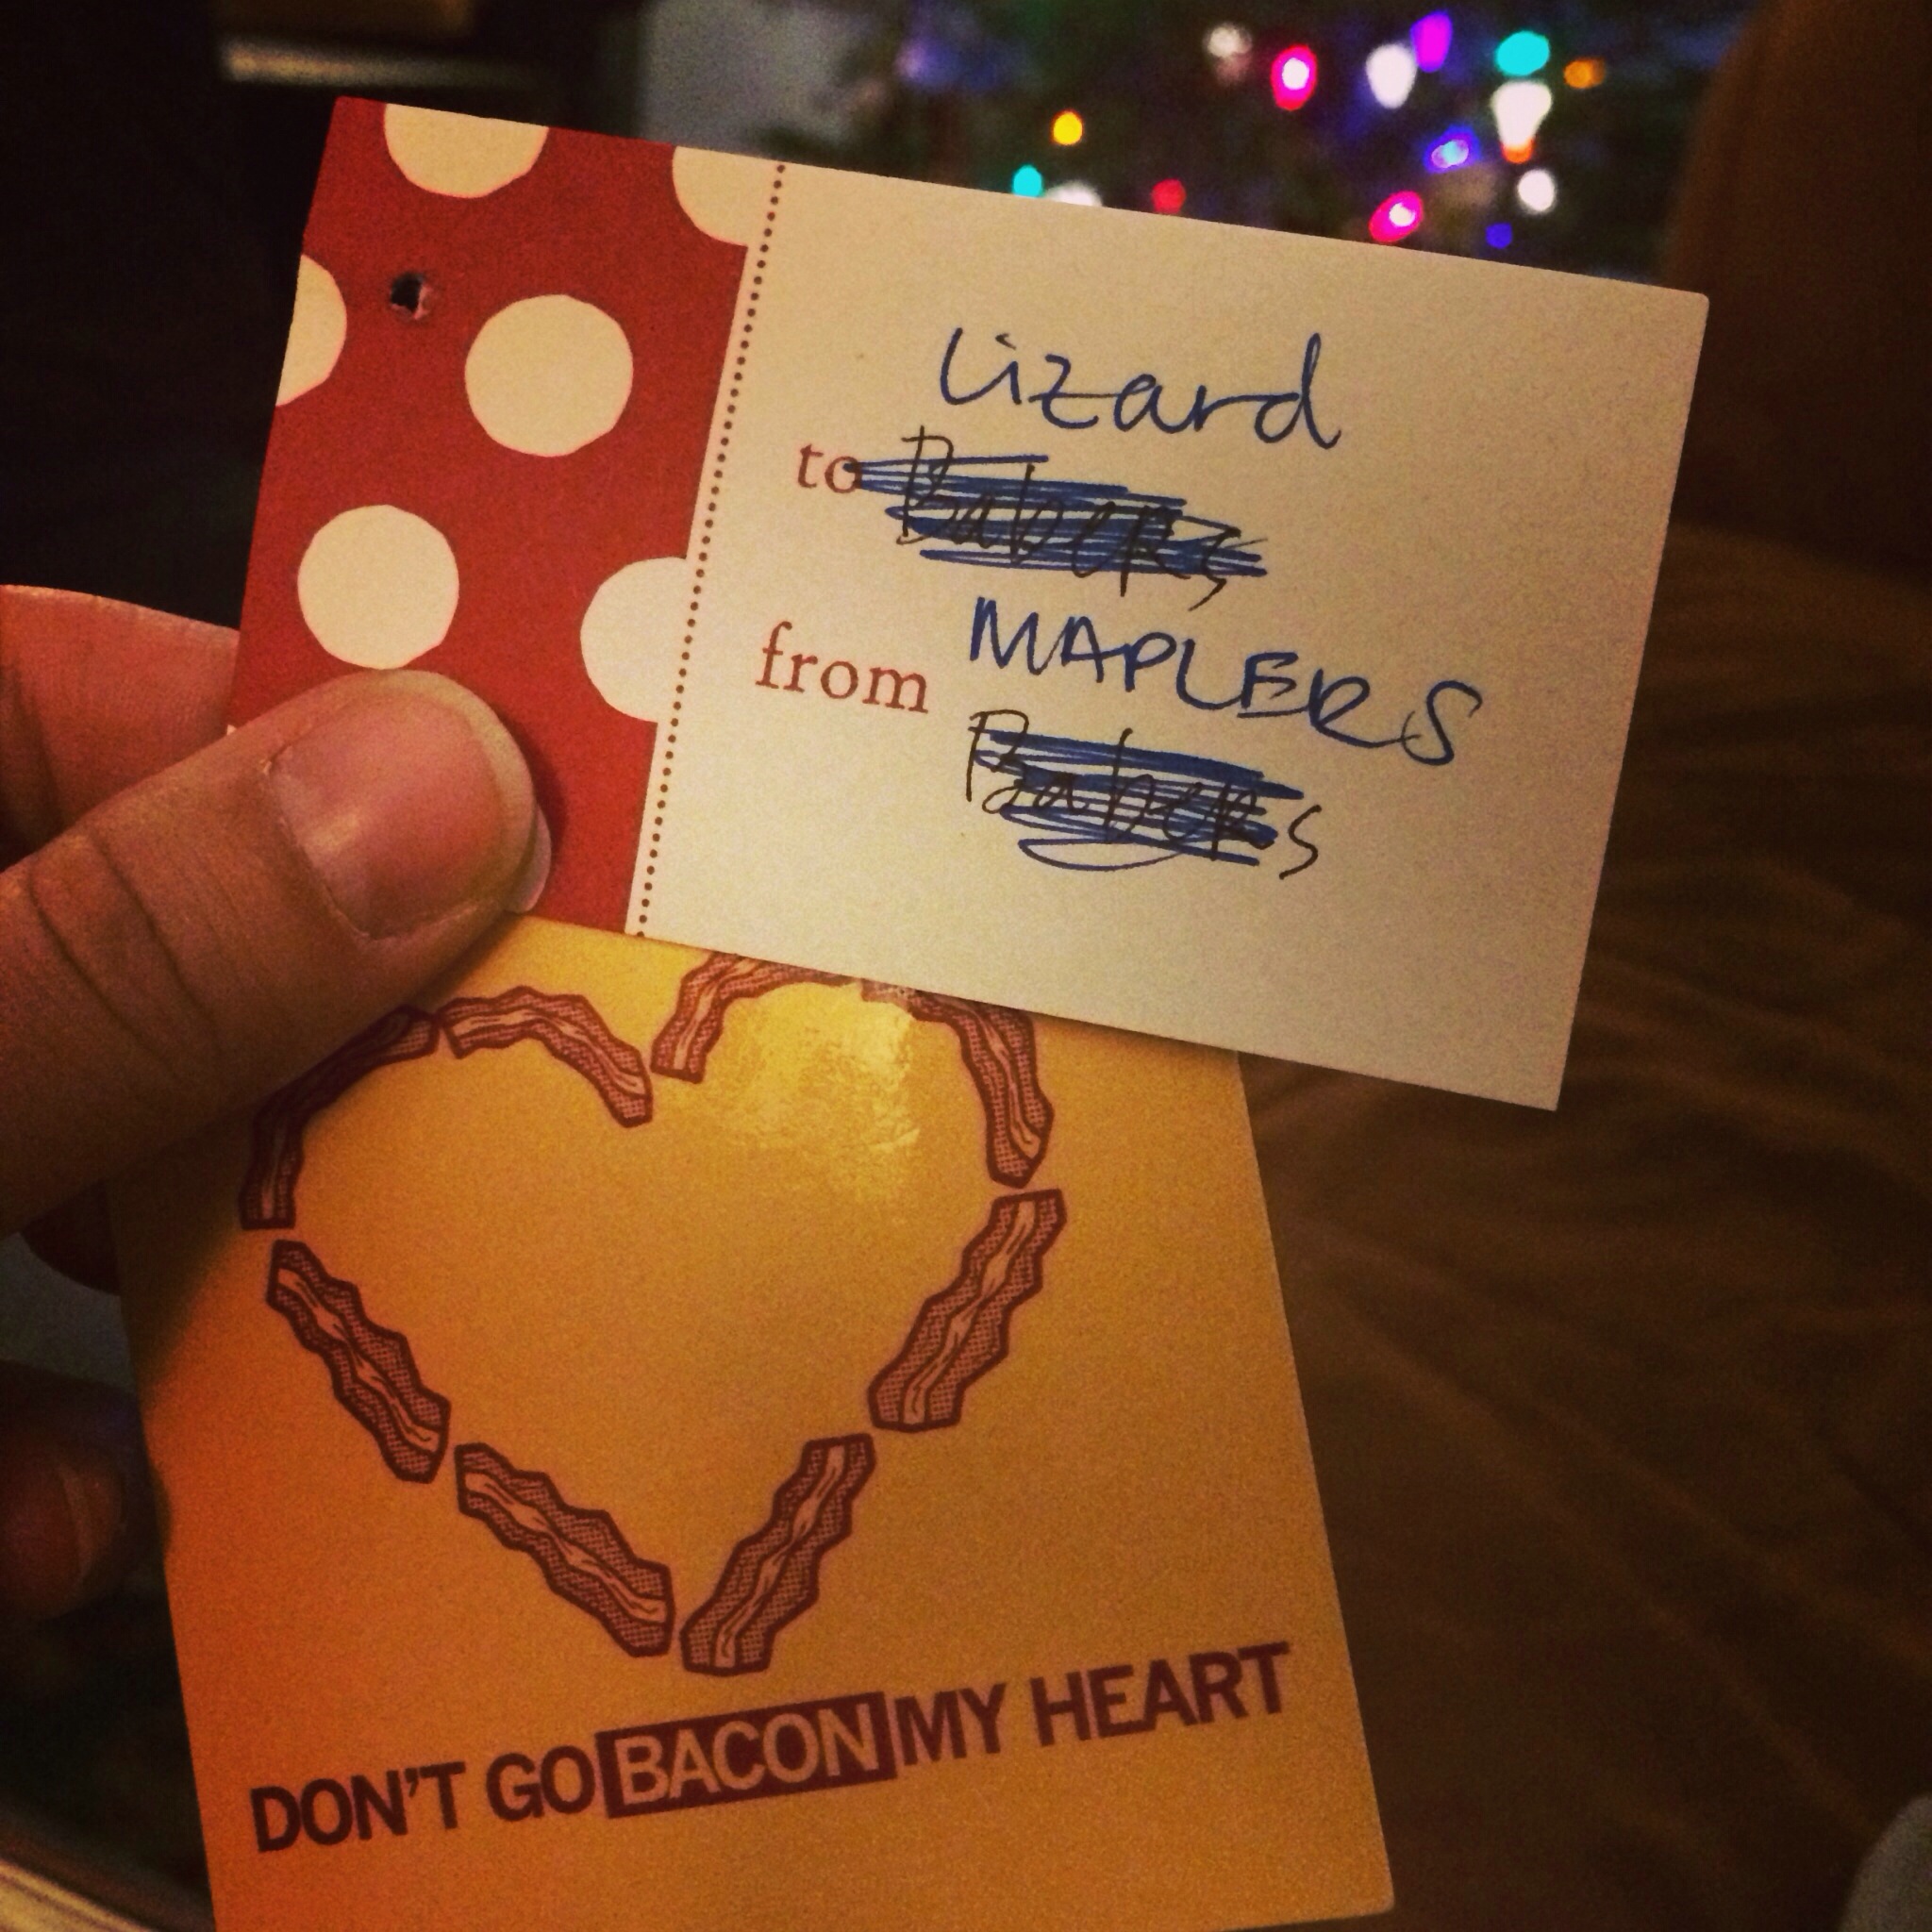 Lizard
to Babers
from MAPLERS
Babers
DON'T GO BACON MY HEART